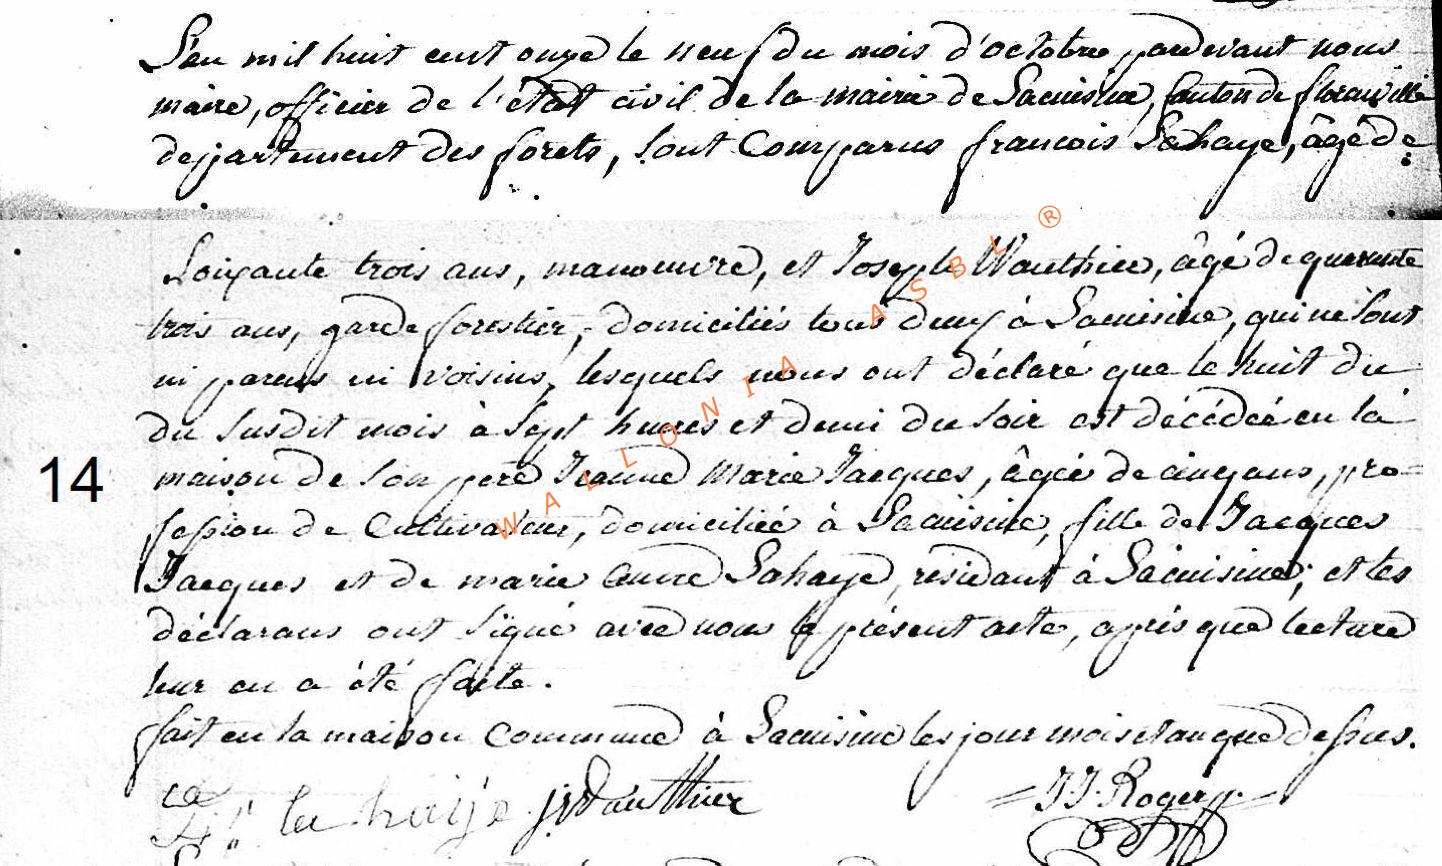 L'an mil huit cent onze le neuf du mois d'octobre, pardevant nous
maire, officier de l'état civil de la mairie de Lacuisine, canton de florenville
departement des forets, sont comparus francois Lahaye, âgé de
soixante trois ans, manoeuvre, et Joseph Wauthier, âgé de quarante
trois ans, garde forestier, domiciliés tous deux à Lacuisine, qui ne sont
ni parens ni voisins, lesquels nous ont déclaré que le huit du
du susdit mois à sept heures et demi du soir est décédée en la
14
maison de son pere Jeanne Marie Jacques, âgée de cinq ans, pro=
fession de Cultivateur, domiciliée à Lacuisine, fille de Jacques
Jacques et de marie anne Lahaye, residant à Lacuisine; et les
déclarans ont signé avec nous le présent acte, après que lecture
leur en a été faite.
fait en la maison Commune à Lacuisine les jour mois et an que dessus.
la haije J Wauthier J J. Roger
WALLONIA ASBL ®